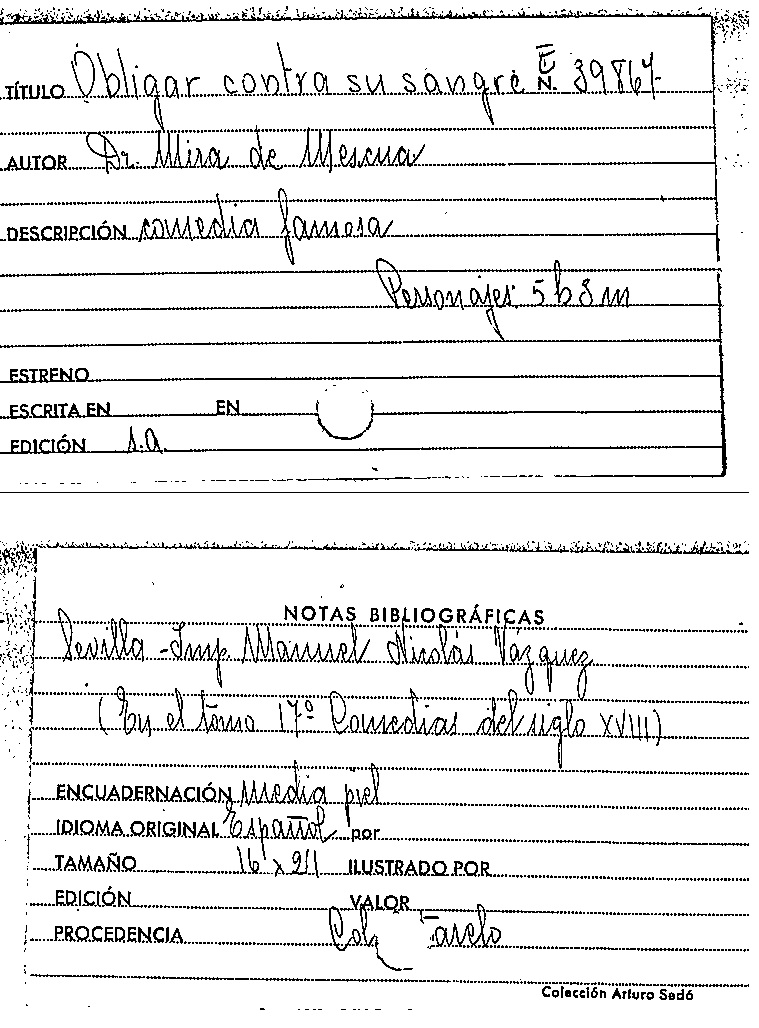 TÍTULO Obligar contra su sangre E N. 39867
AUTOR Dr. Mira de Mescua
DESCRIPCIÓN comedia famosa
Personajes: 5 h 3 m
ESTRENO
ESCRITA EN EN
EDICIÓN s.a.
NOTAS BIBLIOGRÁFICAS
Sevilla - Imp. Manuel Nicolás Vázquez
(En el tomo 17º Comedias del siglo XVIII)
ENCUADERNACIÓN Media piel
IDIOMA ORIGINAL Español por
TAMAÑO 16 x 21 ILUSTRADO POR
EDICIÓN VALOR
PROCEDENCIA
Colección Arturo Sedó